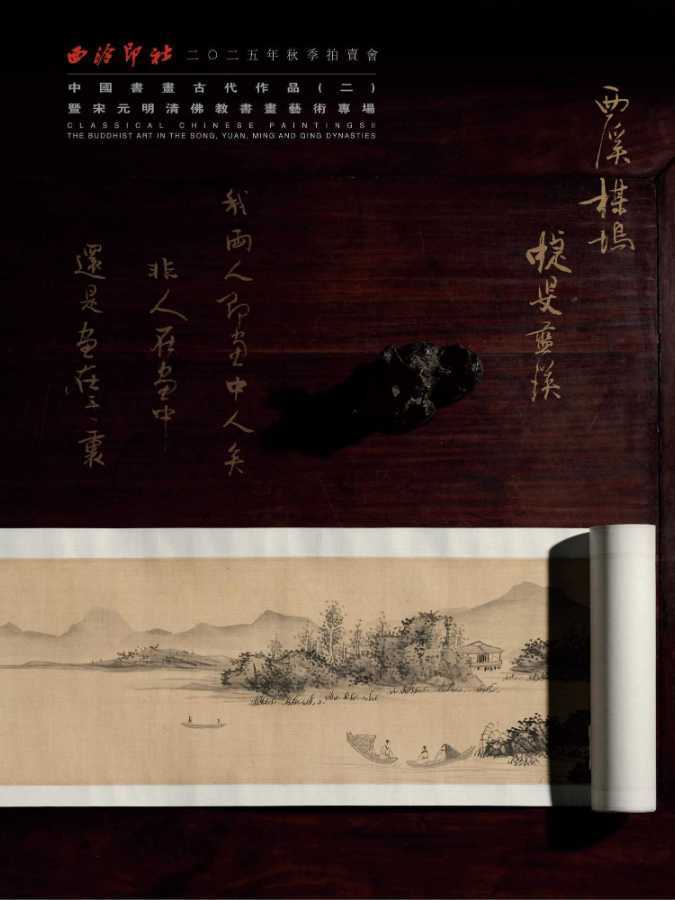 西泠印社 二〇二五年秋季拍賣會
中國書畫古代作品(二)
暨宋元明清佛教書畫藝術專場
CLASSICAL CHINESE PAINTINGS II
THE BUDDHIST ART IN THE SONG, YUAN, MING AND QING DYNASTIES
西溪楳塢
蜨叟藍瑛
我兩人即畫中人矣
非人在畫中
還是畫在裏